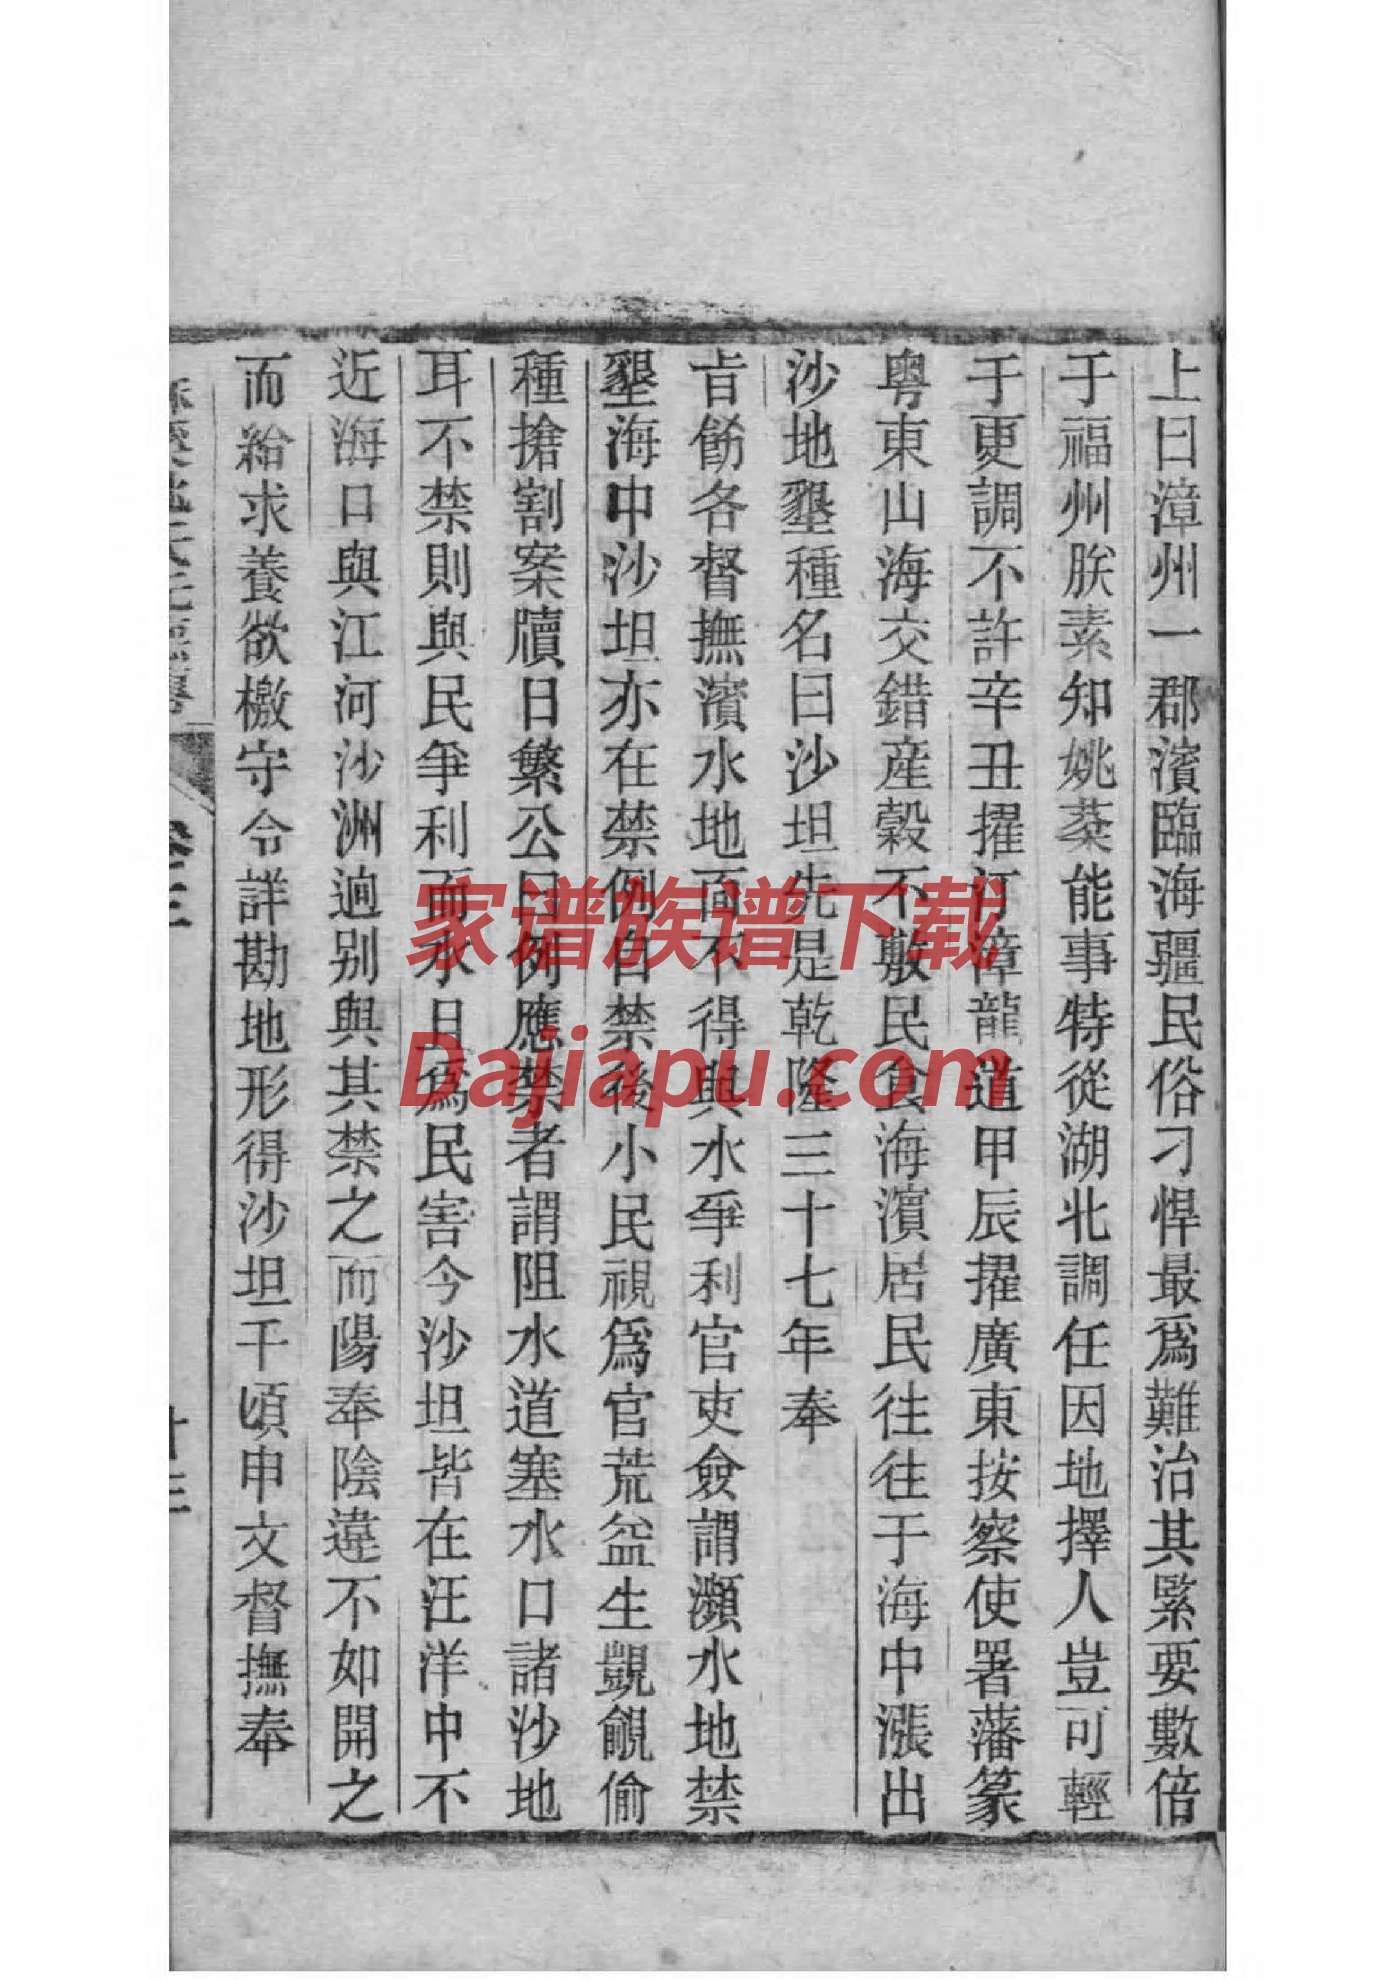 上曰漳州一郡濱臨海疆民俗刁悍最爲難治其緊要數倍
于福州朕素知姚棻能事特從湖北調任因地擇人豈可輕
于更調不許辛丑擢汀漳龍道甲辰擢廣東按察使署藩篆
粤東山海交錯産穀不敷民食海濱居民往往于海中漲出
沙地墾種名曰沙坦先是乾隆三十七年奉
旨飭各督撫濱水地面不得與水爭利官吏僉謂瀕水地禁
墾海中沙坦亦在禁例自禁後小民視爲官荒益生覬覦偷
種搶割案牘日繁公曰例應禁者謂阻水道塞水口諸沙地
耳不禁則與民爭利而水日爲民害今沙坦皆在汪洋中不
近海口與江河沙洲逈别與其禁之而陽奉陰違不如開之
而給求養欲檄守令詳勘地形得沙坦千頃申文督撫奉
卷三
家谱族谱下载
Dajiapu.com